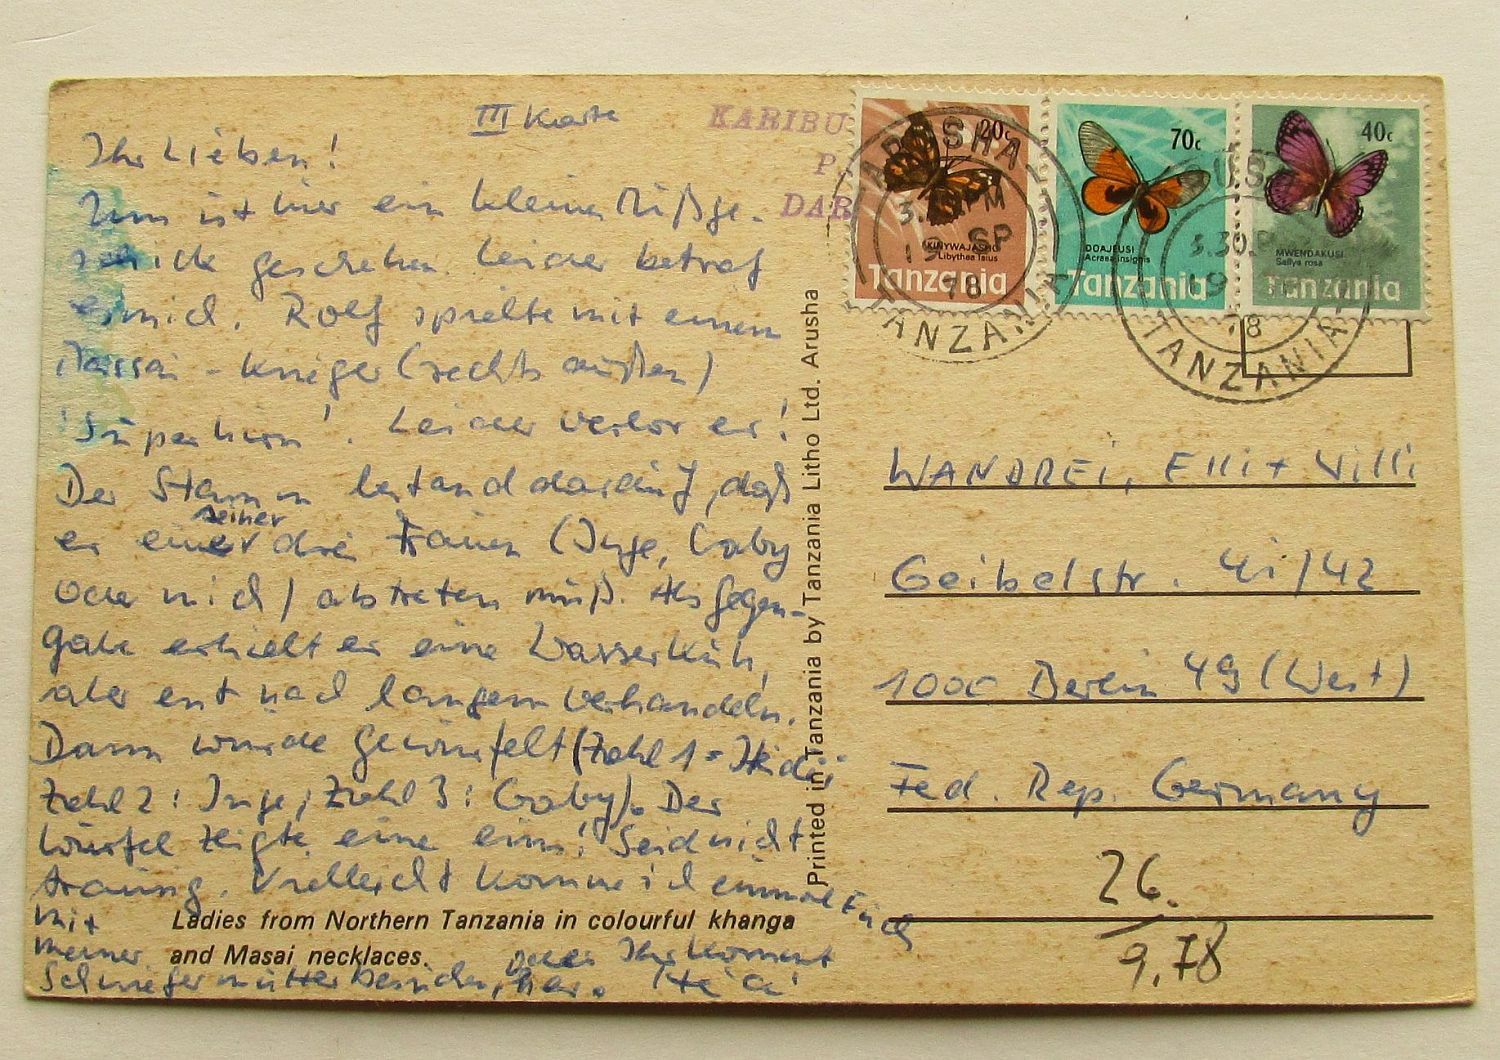 III Karte
Ihr Lieben!
Nun ist hier ein kleines Mißge-
schick geschehen. Leider betraf
es mich. Rolf spielte mit einem
Massai - Krieger (rechts außen)
'Superhirn'. Leider verlor er!
Der Stamm bestand darauf, daß
er einer seiner drei Frauen (Inge, Gaby
oder mich) abtreten muß. Als Gegen-
gabe erhielt er eine Wasserkuh,
aber erst nach langem Verhandeln.
Dann wurde gewürfelt (Zahl 1 = Heidi
Zahl 2: Inge, Zahl 3: Gaby). Der
Würfel zeigte eine eins! Seid nicht
traurig. Vielleicht komme ich einmal Euch
mit
meiner
Schwiegermutter besuchen, oder Ihr kommt
her.
Ladies from Northern Tanzania in colourful khanga
and Masai necklaces.
Printed in Tanzania by Tanzania Litho Ltd. Arusha
KARIBU
P.
DAR
20c
KINYWAJASHO
Libythea laius
Tanzania
70c
DOAJEUSI
Acraea insignis
Tanzania
40c
MWENDAKUSI
Sallya rosa
Tanzania
ARUSHA
3.30 PM
19 SP
78
TANZANIA
3.30 P
19
78
TANZANIA
WANDREI, Elli + Willi
Geibelstr. 41/42
1000 Berlin 49 (West)
Fed. Rep. Germany
26.
9.78